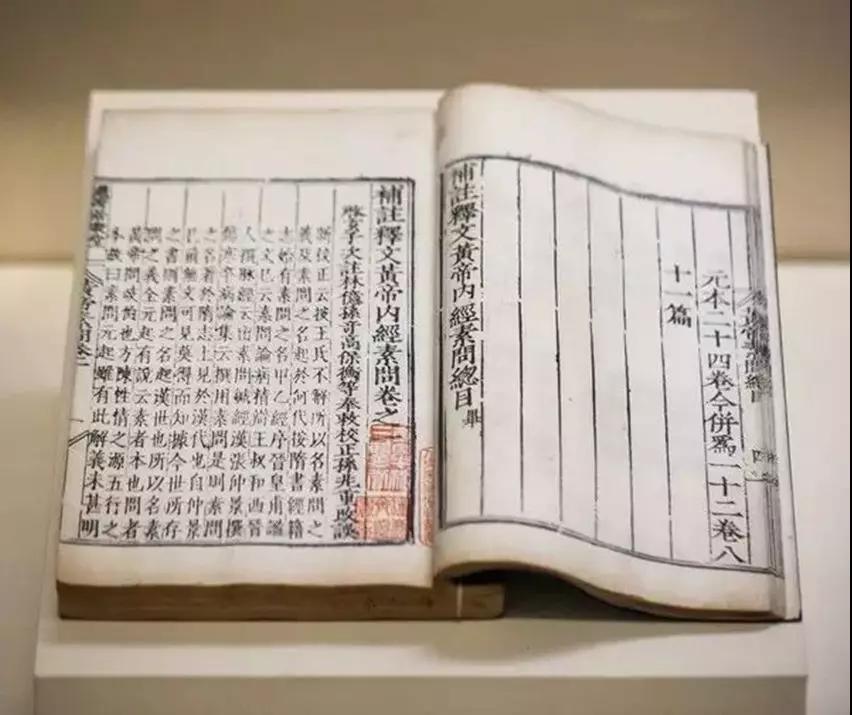 元本二十四卷今併爲一十二卷八
十一篇
補註釋文黃帝內經素問總目畢
補註釋文黃帝內經素問卷之一
啓玄子次註林億孫奇高保衡等奉敕校正孫兆重改誤
新校正云按王氏不解所以名素問之
義及素問之名起於何代按隋書經籍
志始有素問之名甲乙經序晉皇甫謐
之文已云素問論病精辨王叔和西晉
人撰脉經云出素問鍼經漢張仲景撰
傷寒卒病論集云撰用素問是則素問
之名著於隋志上見於漢代也自仲景
已前無文可見莫得而知據今世所存
之書則素問之名起漢世也所以名素
問之義全元起有說云素者本也問者
黃帝問岐伯也方陳性情之源五行之
本故曰素問元起雖有此解義未甚明